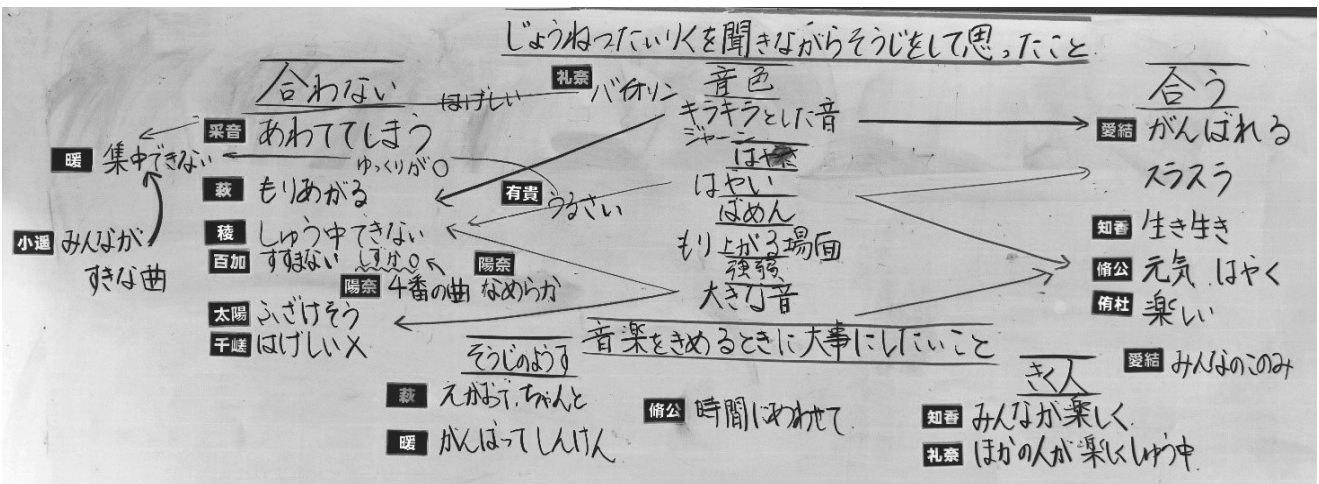 じょうねつたいりくを聞きながらそうじをして思ったこと
合わない
はげしい
礼奈 バイオリン
采音 あわててしまう
暖 集中できない
ゆっくりが○
萩 もりあがる
有貴 うるさい
稜 しゅう中できない
小遥 みんなが
すきな曲
百加 すすまない しずか○
陽奈 なめらか
陽奈 4番の曲
太陽 ふざけそう
千嵯 はげしい×
音色
キラキラとした音
ジャーン
はやさ
はやい
ばめん
もり上がる場面
強弱
大きな音
合う
愛結 がんばれる
スラスラ
知香 生き生き
脩公 元気 はやく
侑社 楽しい
愛結 みんなのこのみ
音楽をきめるときに大事にしたいこと
そうじのようす
萩 えがおで、ちゃんと
暖 がんばってしんけん
脩公 時間にあわせて
きく人
知香 みんなが楽しく
礼奈 ほかの人が楽しくしゅう中